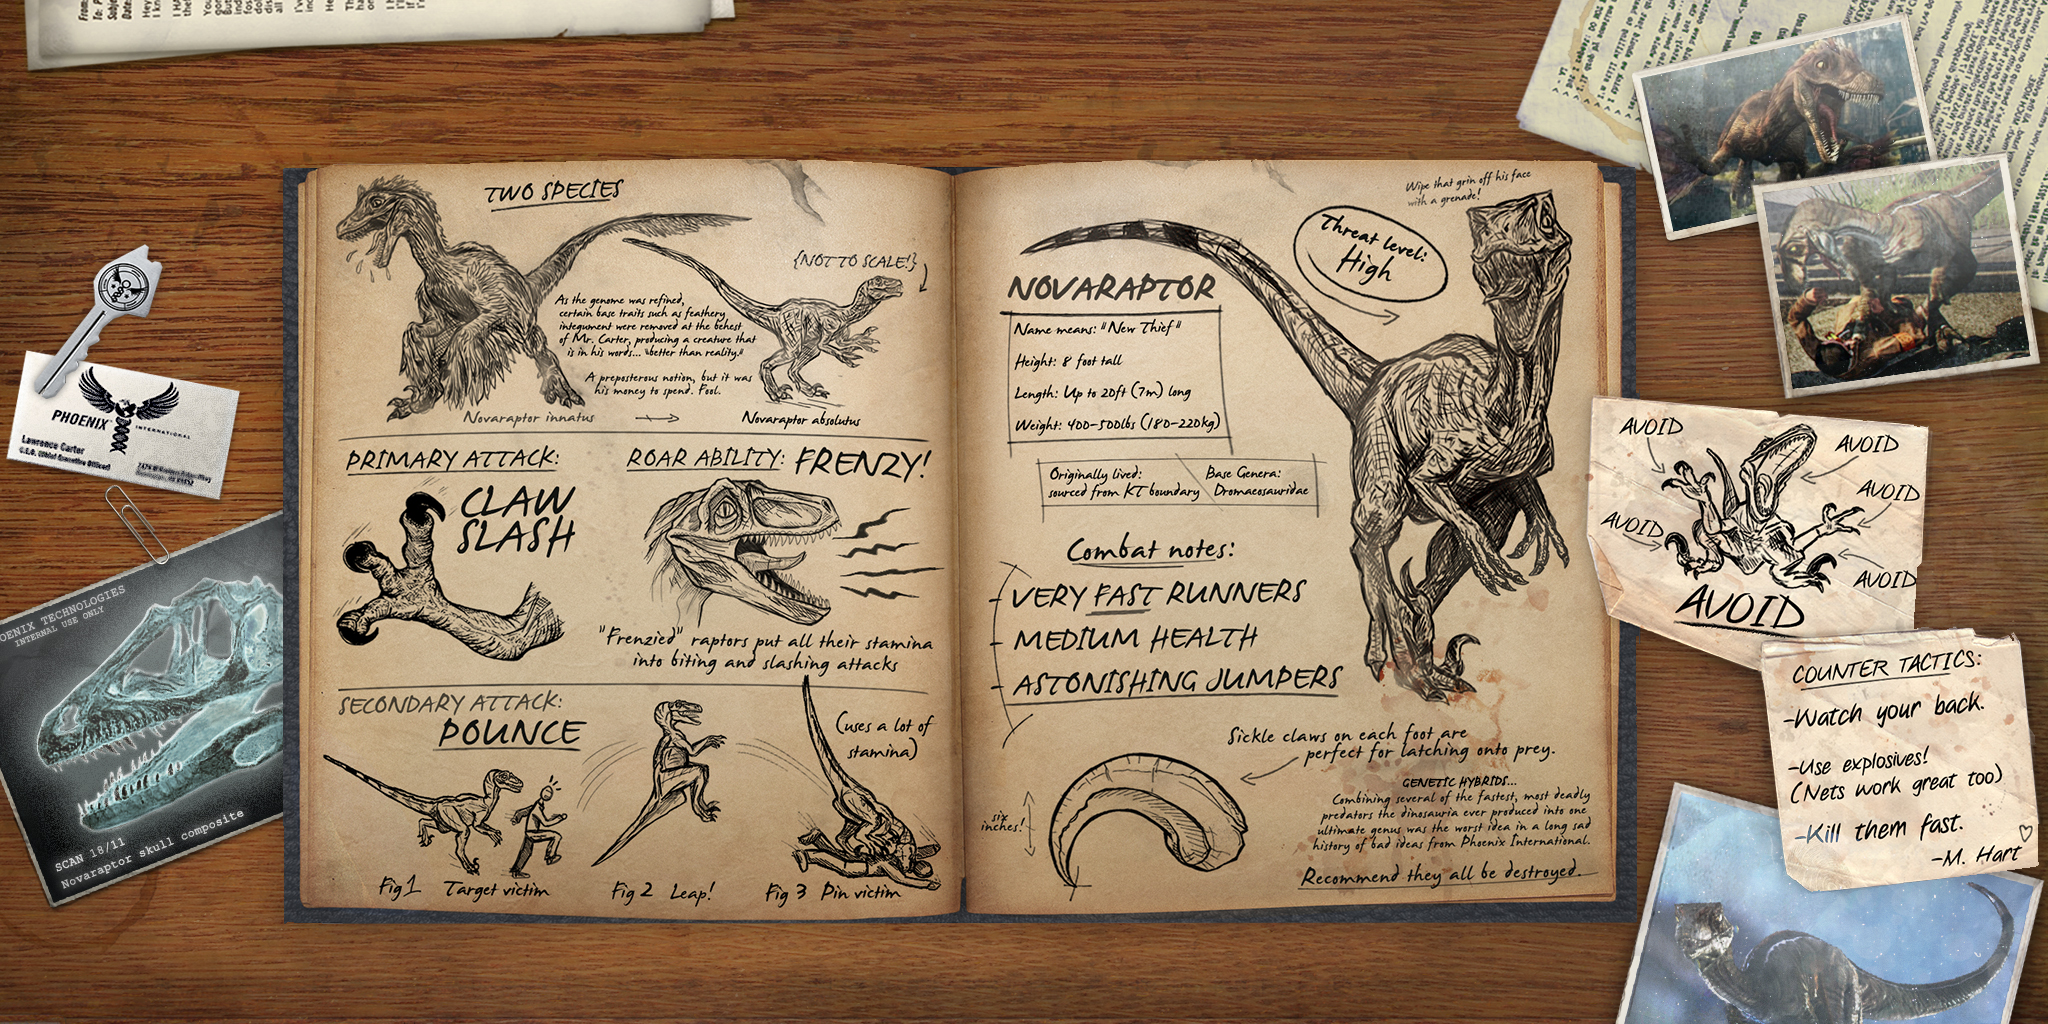 TWO SPECIES
{NOT TO SCALE!}
As the genome was refined,
certain base traits such as feathery
integument were removed at the behest
of Mr. Carter, producing a creature that
is in his words... "better than reality."
A preposterous notion, but it was
his money to spend. Fool.
Novaraptor innatus
Novaraptor absolutus
PRIMARY ATTACK:
CLAW
SLASH
ROAR ABILITY: FRENZY!
"Frenzied" raptors put all their stamina
into biting and slashing attacks
SECONDARY ATTACK:
POUNCE
(uses a lot of
stamina)
Fig 1 Target victim
Fig 2 Leap!
Fig 3 Pin victim
Wipe that grin off his face
with a grenade!
Threat level:
High
NOVARAPTOR
Name means: "New Thief"
Height: 8 foot tall
Length: Up to 20ft (7m) long
Weight: 400-500lbs (180-220kg)
Originally lived:
sourced from KT boundary
Base Genera:
Dromaeosauridae
Combat notes:
- VERY FAST RUNNERS
- MEDIUM HEALTH
- ASTONISHING JUMPERS
Sickle claws on each foot are
perfect for latching onto prey.
six
inches!
GENETIC HYBRIDS...
Combining several of the fastest, most deadly
predators the dinosauria ever produced into one
ultimate genus was the worst idea in a long sad
history of bad ideas from Phoenix International.
Recommend they all be destroyed.
PHOENIX
INTERNATIONAL
Lawrence Carter
C.E.O. (Chief Executive Officer)
OENIX TECHNOLOGIES
INTERNAL USE ONLY
SCAN 18/11
Novaraptor skull composite
AVOID
AVOID
AVOID
AVOID
AVOID
AVOID
COUNTER TACTICS:
-Watch your back.
-Use explosives!
(Nets work great too)
-Kill them fast.
-M. Hart